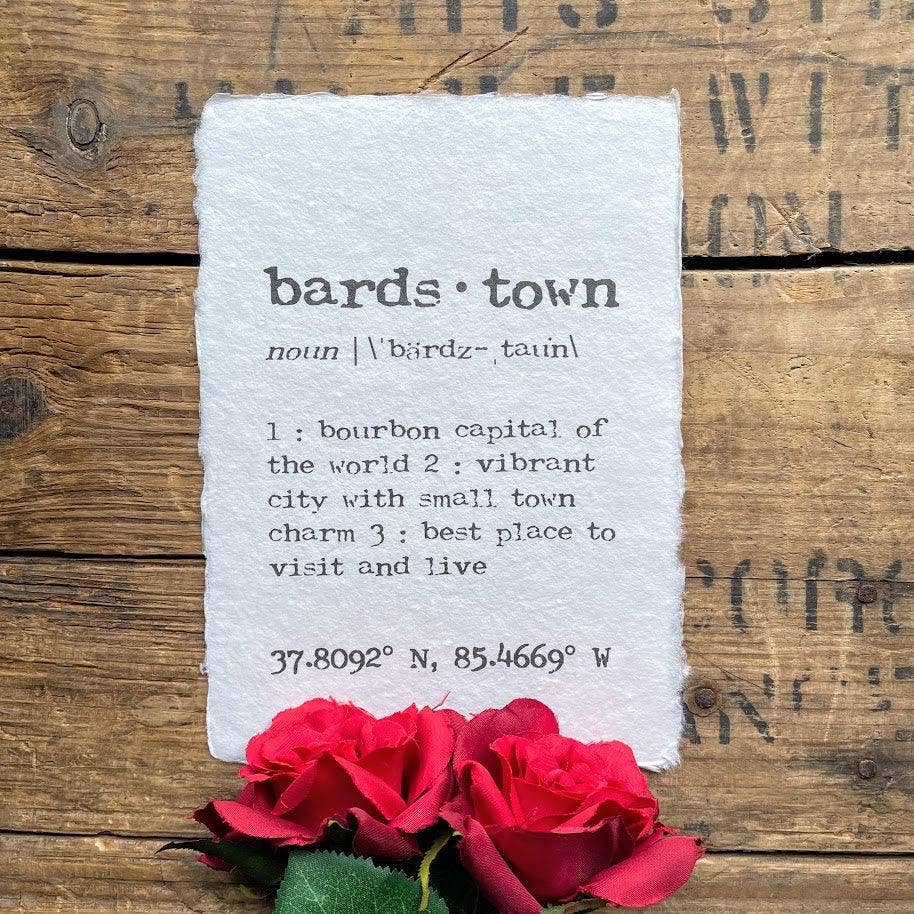 bards • town
noun | \ˈbärdz-ˌtau̇n\
1 : bourbon capital of
the world 2 : vibrant
city with small town
charm 3 : best place to
visit and live
37.8092° N, 85.4669° W